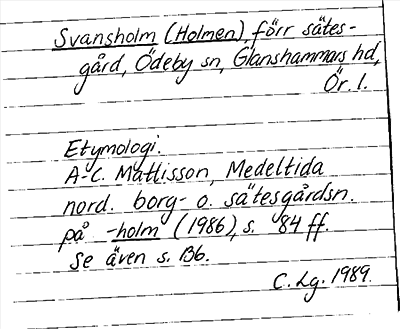 Svansholm (Holmen), förr sätes-
gård, Ödeby sn, Glanshammars hd,
Ör. l.
Etymologi.
A-C. Mattisson, Medeltida
nord. borg- o. sätesgårdsn.
på -holm (1986), s. 84 ff.
Se även s. 136.
C. Lg. 1989.